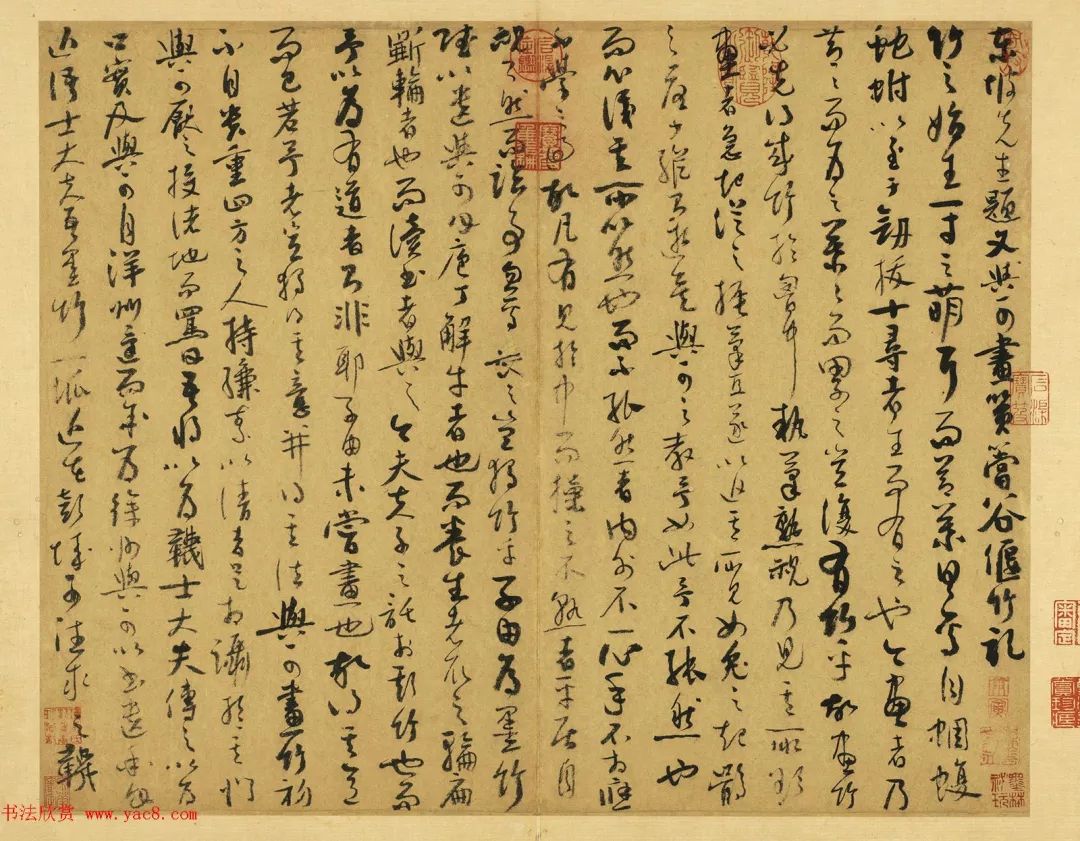 東坡先生題文與可畫篔簹谷偃竹記
竹之始生一寸之萌耳而節葉具焉自蜩蝮
蛇蚹以至于劒拔十尋者生而有之也今畫者乃
節節而為之葉葉而累之豈復有竹乎故畫竹
必先得成竹於胷中執筆熟視乃見其所欲
畫者急起從之振筆直遂以追其所見如兔之起鶻
之落少縱則逝矣與可之教予如此予不能然也
而心識其所以然也而不能然者內外不一心手不相應
不學之過故凡有見於中而操之不熟者平居自
視了然而臨事忽焉喪之豈獨竹乎子由為墨竹
賦以遺與可曰庖丁解牛者也而養生者取之輪扁
斲輪者也而讀書者與之今夫夫子之託於斯竹也而
予以為有道者則非耶子由未嘗畫也故得其意
而已若予者豈獨得其意并得其法與可畫竹初
不自貴重四方之人持縑素以請者足相躡於其門
與可厭之投諸地而罵曰吾將以為韈士大夫傳之以為
口實及與可自洋州還而余為徐州與可以書遺余曰
近語士大夫吾墨竹一派近在彭城可往求之韈
书法欣赏 www.yac8.com